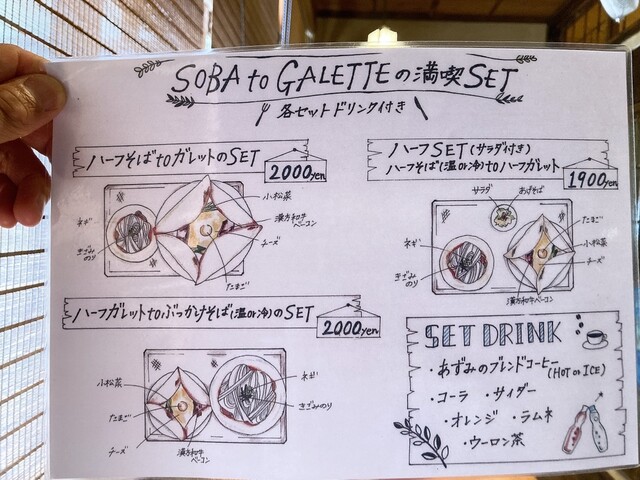 SOBA to GALETTEの満喫SET
各セットドリンク付き
ハーフそばtoガレットのSET
2000yen
ネギ
きざみのり
小松菜
漢方和牛ベーコン
チーズ
たまご
ハーフSET(サラダ付き)
ハーフそば(温or冷)toハーフガレット
1900yen
サラダ
あげそば
ネギ
きざみのり
たまご
小松菜
チーズ
漢方和牛ベーコン
ハーフガレットtoぶっかけそば(温or冷)のSET
2000yen
小松菜
たまご
チーズ
漢方和牛
ベーコン
ネギ
きざみのり
SET DRINK
・あずみのブレンドコーヒー
(HOT or ICE)
・コーラ ・サイダー
・オレンジ ・ラムネ
・ウーロン茶